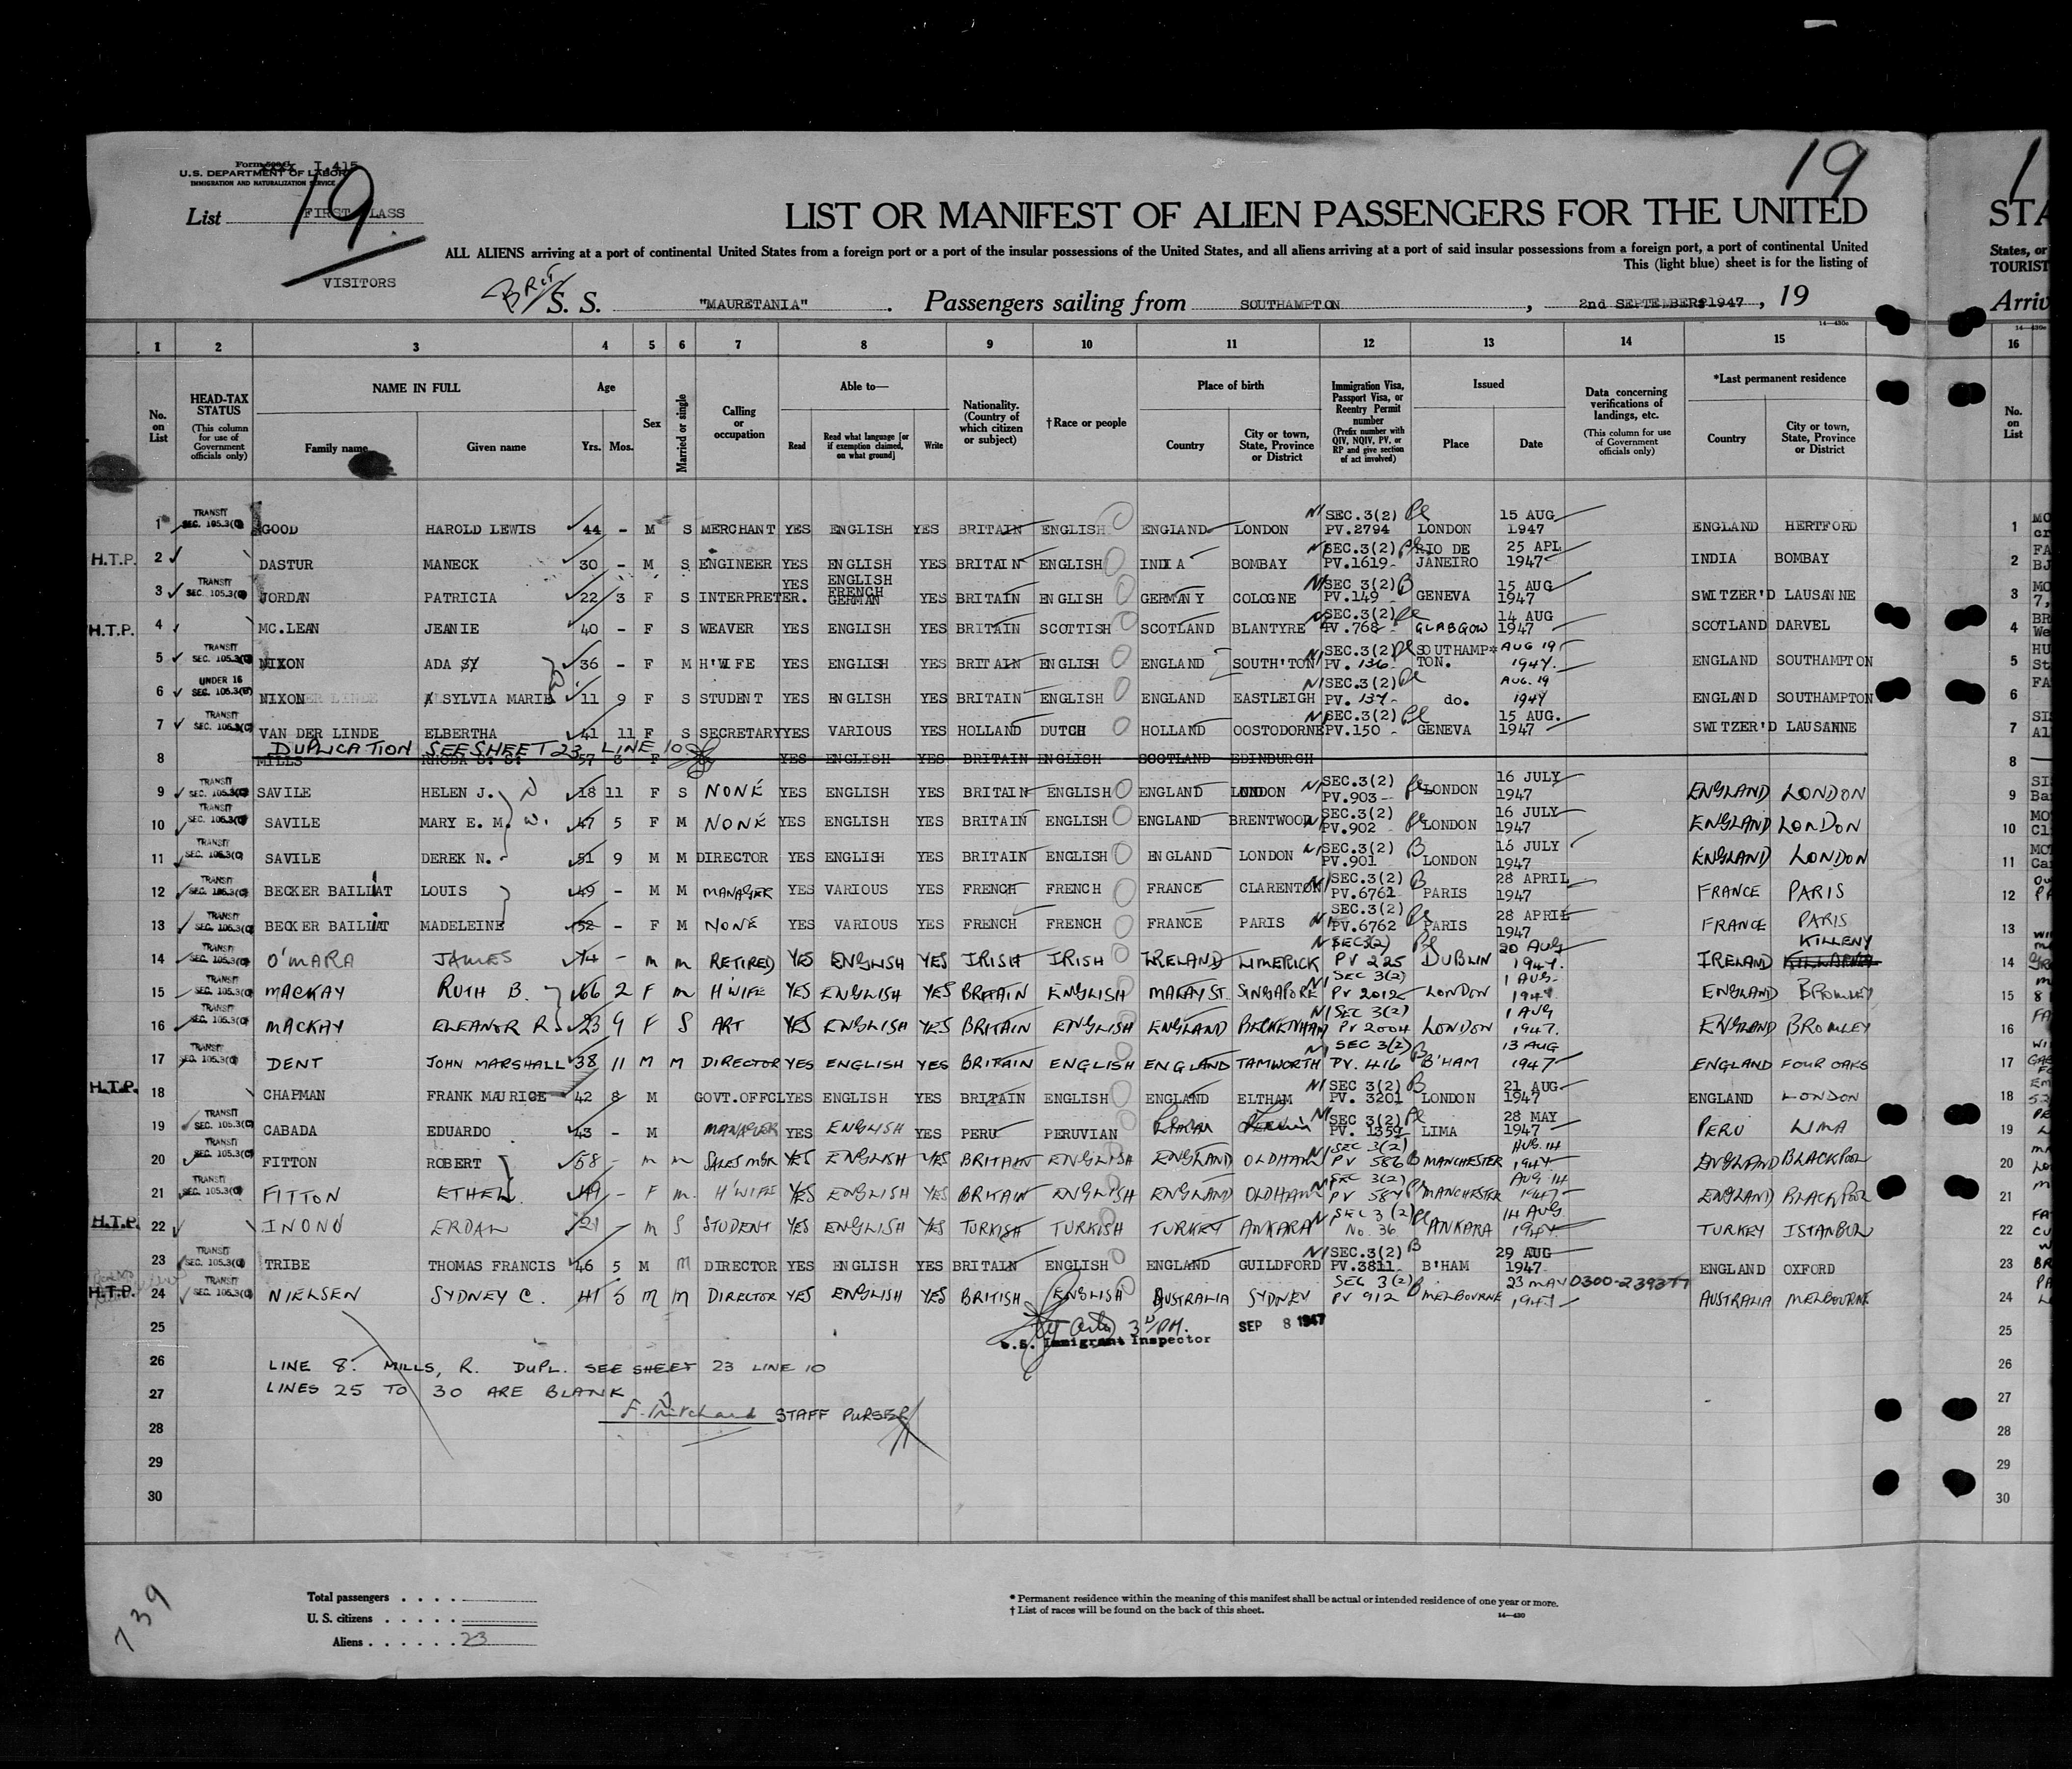 Form I 415
U.S. DEPARTMENT OF LABOR
IMMIGRATION AND NATURALIZATION SERVICE
List FIRST CLASS
19
VISITORS
19
LIST OR MANIFEST OF ALIEN PASSENGERS FOR THE UNITED
ALL ALIENS arriving at a port of continental United States from a foreign port or a port of the insular possessions of the United States, and all aliens arriving at a port of said insular possessions from a foreign port, a port of continental United
This (light blue) sheet is for the listing of
BRIT S. S. "MAURETANIA". Passengers sailing from SOUTHAMPTON, 2nd SEPTEMBER 1947, 19
14—430c
1 2 3 4 5 6 7 8 9 10 11 12 13 14 15
No. on List
HEAD-TAX STATUS (This column for use of Government officials only)
NAME IN FULL Family name Given name
Age Yrs. Mos.
Sex
Married or single
Calling or occupation
Able to— Read Read what language [or if exemption claimed, on what ground] Write
Nationality. (Country of which citizen or subject)
†Race or people
Place of birth Country City or town, State, Province or District
Immigration Visa, Passport Visa, or Reentry Permit number (Prefix number with QIV, NQIV, PV, or RP and give section of act involved)
Issued Place Date
Data concerning verifications of landings, etc. (This column for use of Government officials only)
*Last permanent residence Country City or town, State, Province or District
1 TRANSIT SEC. 105.3(C) GOOD HAROLD LEWIS 44 - M S MERCHANT YES ENGLISH YES BRITAIN ENGLISH ENGLAND LONDON SEC.3(2) PV.2794 LONDON 15 AUG 1947 ENGLAND HERTFORD
H.T.P. 2 DASTUR MANECK 30 - M S ENGINEER YES ENGLISH YES BRITAIN ENGLISH INDIA BOMBAY SEC.3(2) PV.1619 RIO DE JANEIRO 25 APL 1947 INDIA BOMBAY
3 TRANSIT SEC. 105.3(C) JORDAN PATRICIA 22 3 F S INTERPRETER. YES ENGLISH FRENCH GERMAN YES BRITAIN ENGLISH GERMANY COLOGNE SEC.3(2) PV.149 GENEVA 15 AUG 1947 SWITZER'D LAUSANNE
H.T.P. 4 MC.LEAN JEANIE 40 - F S WEAVER YES ENGLISH YES BRITAIN SCOTTISH SCOTLAND BLANTYRE SEC.3(2) PV.768 GLASGOW 14 AUG 1947 SCOTLAND DARVEL
5 TRANSIT SEC. 105.3(C) NIXON ADA 36 - F M H'WIFE YES ENGLISH YES BRITAIN ENGLISH ENGLAND SOUTH'TON SEC.3(2) PV. 136 SOUTHAMPTON. AUG 19 1947. ENGLAND SOUTHAMPTON
6 UNDER 16 SEC. 105.3(C) NIXON SYLVIA MARIE 11 9 F S STUDENT YES ENGLISH YES BRITAIN ENGLISH ENGLAND EASTLEIGH SEC.3(2) PV. 137 do. AUG. 19 1947 ENGLAND SOUTHAMPTON
7 TRANSIT SEC. 105.3(C) VAN DER LINDE ELBERTHA 41 11 F S SECRETARY YES VARIOUS YES HOLLAND DUTCH HOLLAND OOSTODORNE SEC.3(2) PV.150 GENEVA 15 AUG. 1947 SWITZER'D LAUSANNE
DUPLICATION SEE SHEET 23 LINE 10
8 MILLS 57 F YES ENGLISH YES BRITAIN ENGLISH SCOTLAND EDINBURGH
9 TRANSIT SEC. 105.3(C) SAVILE HELEN J. 18 11 F S NONE YES ENGLISH YES BRITAIN ENGLISH ENGLAND LONDON SEC.3(2) PV.903 LONDON 16 JULY 1947 ENGLAND LONDON
10 TRANSIT SEC. 105.3(C) SAVILE MARY E. M. W. 47 5 F M NONE YES ENGLISH YES BRITAIN ENGLISH ENGLAND BRENTWOOD SEC.3(2) PV.902 LONDON 16 JULY 1947 ENGLAND LONDON
11 TRANSIT SEC. 105.3(C) SAVILE DEREK N. 51 9 M M DIRECTOR YES ENGLISH YES BRITAIN ENGLISH ENGLAND LONDON SEC.3(2) PV.901 LONDON 16 JULY 1947 ENGLAND LONDON
12 TRANSIT SEC. 105.3(C) BECKER BAILLIAT LOUIS 49 - M M MANAGER YES VARIOUS YES FRENCH FRENCH FRANCE CLARENTON SEC.3(2) PV.6761 PARIS 28 APRIL 1947 FRANCE PARIS
13 TRANSIT SEC. 105.3(C) BECKER BAILLIAT MADELEINE 52 - F M NONE YES VARIOUS YES FRENCH FRENCH FRANCE PARIS SEC.3(2) PV.6762 PARIS 28 APRIL 1947 FRANCE PARIS
14 TRANSIT SEC. 105.3(C) O'MARA JAMES 74 - M M RETIRED YES ENGLISH YES IRISH IRISH IRELAND LIMERICK SEC 3(2) PV 225 DUBLIN 20 AUG 1947. IRELAND KILLENY KILLARNEY
15 TRANSIT SEC. 105.3(C) MACKAY RUTH B. 66 2 F M H'WIFE YES ENGLISH YES BRITAIN ENGLISH MALAY ST. SINGAPORE SEC 3(2) PV 2012 LONDON 1 AUG 1947 ENGLAND BROMLEY
16 TRANSIT SEC. 105.3(C) MACKAY ELEANOR R. 23 9 F S ART YES ENGLISH YES BRITAIN ENGLISH ENGLAND BECKENHAM SEC 3(2) PV 2004 LONDON 1 AUG 1947. ENGLAND BROMLEY
17 TRANSIT SEC. 105.3(C) DENT JOHN MARSHALL 38 11 M M DIRECTOR YES ENGLISH YES BRITAIN ENGLISH ENGLAND TAMWORTH SEC 3(2) PV. 416 B'HAM 13 AUG 1947 ENGLAND FOUR OAKS
H.T.P. 18 CHAPMAN FRANK MAURICE 42 8 M GOVT.OFFCL YES ENGLISH YES BRITAIN ENGLISH ENGLAND ELTHAM SEC 3(2) PV. 3201 LONDON 21 AUG 1947 ENGLAND LONDON
19 TRANSIT SEC. 105.3(C) CABADA EDUARDO 43 - M MANAGER YES ENGLISH YES PERU PERUVIAN SEC 3(2) PV. 1359 LIMA 28 MAY 1947 PERU LIMA
20 TRANSIT SEC. 105.3(C) FITTON ROBERT 58 - M M SALES MGR YES ENGLISH YES BRITAIN ENGLISH ENGLAND OLDHAM SEC 3(2) PV 586 MANCHESTER AUG. 14 1947 ENGLAND BLACKPOOL
21 TRANSIT SEC. 105.3(C) FITTON ETHEL 49 - F M. H'WIFE YES ENGLISH YES BRITAIN ENGLISH ENGLAND OLDHAM SEC 3(2) PV 587 MANCHESTER AUG 14 1947 ENGLAND BLACKPOOL
H.T.P. 22 INONU ERDAL 21 M S STUDENT YES ENGLISH YES TURKISH TURKISH TURKEY ANKARA SEC 3(2) No. 36 ANKARA 14 AUG. 1947 TURKEY ISTANBUL
23 TRANSIT SEC. 105.3(C) TRIBE THOMAS FRANCIS 46 5 M M DIRECTOR YES ENGLISH YES BRITAIN ENGLISH ENGLAND GUILDFORD SEC.3(2) PV.3811 B'HAM 29 AUG 1947 ENGLAND OXFORD
H.T.P. 24 TRANSIT SEC. 105.3(C) NIELSEN SYDNEY C. 41 5 M M DIRECTOR YES ENGLISH YES BRITISH ENGLISH AUSTRALIA SYDNEY SEC 3(2) PV 912 MELBOURNE 23 MAY 1947 0300-239377 AUSTRALIA MELBOURNE
25 3 PM. SEP 8 1947
U.S. Immigrant Inspector
26 LINE 8. MILLS, R. DUPL. SEE SHEET 23 LINE 10
27 LINES 25 TO 30 ARE BLANK
F. Pritchard STAFF PURSER
28
29
30
739
Total passengers
U. S. citizens
Aliens 23
* Permanent residence within the meaning of this manifest shall be actual or intended residence of one year or more.
† List of races will be found on the back of this sheet.
14—430
STA
States, or
TOURIST
Arriv
16
No. on List
1
2
3
4
5
6
7
8
9
10
11
12
13
14
15
16
17
18
19
20
21
22
23
24
25
26
27
28
29
30